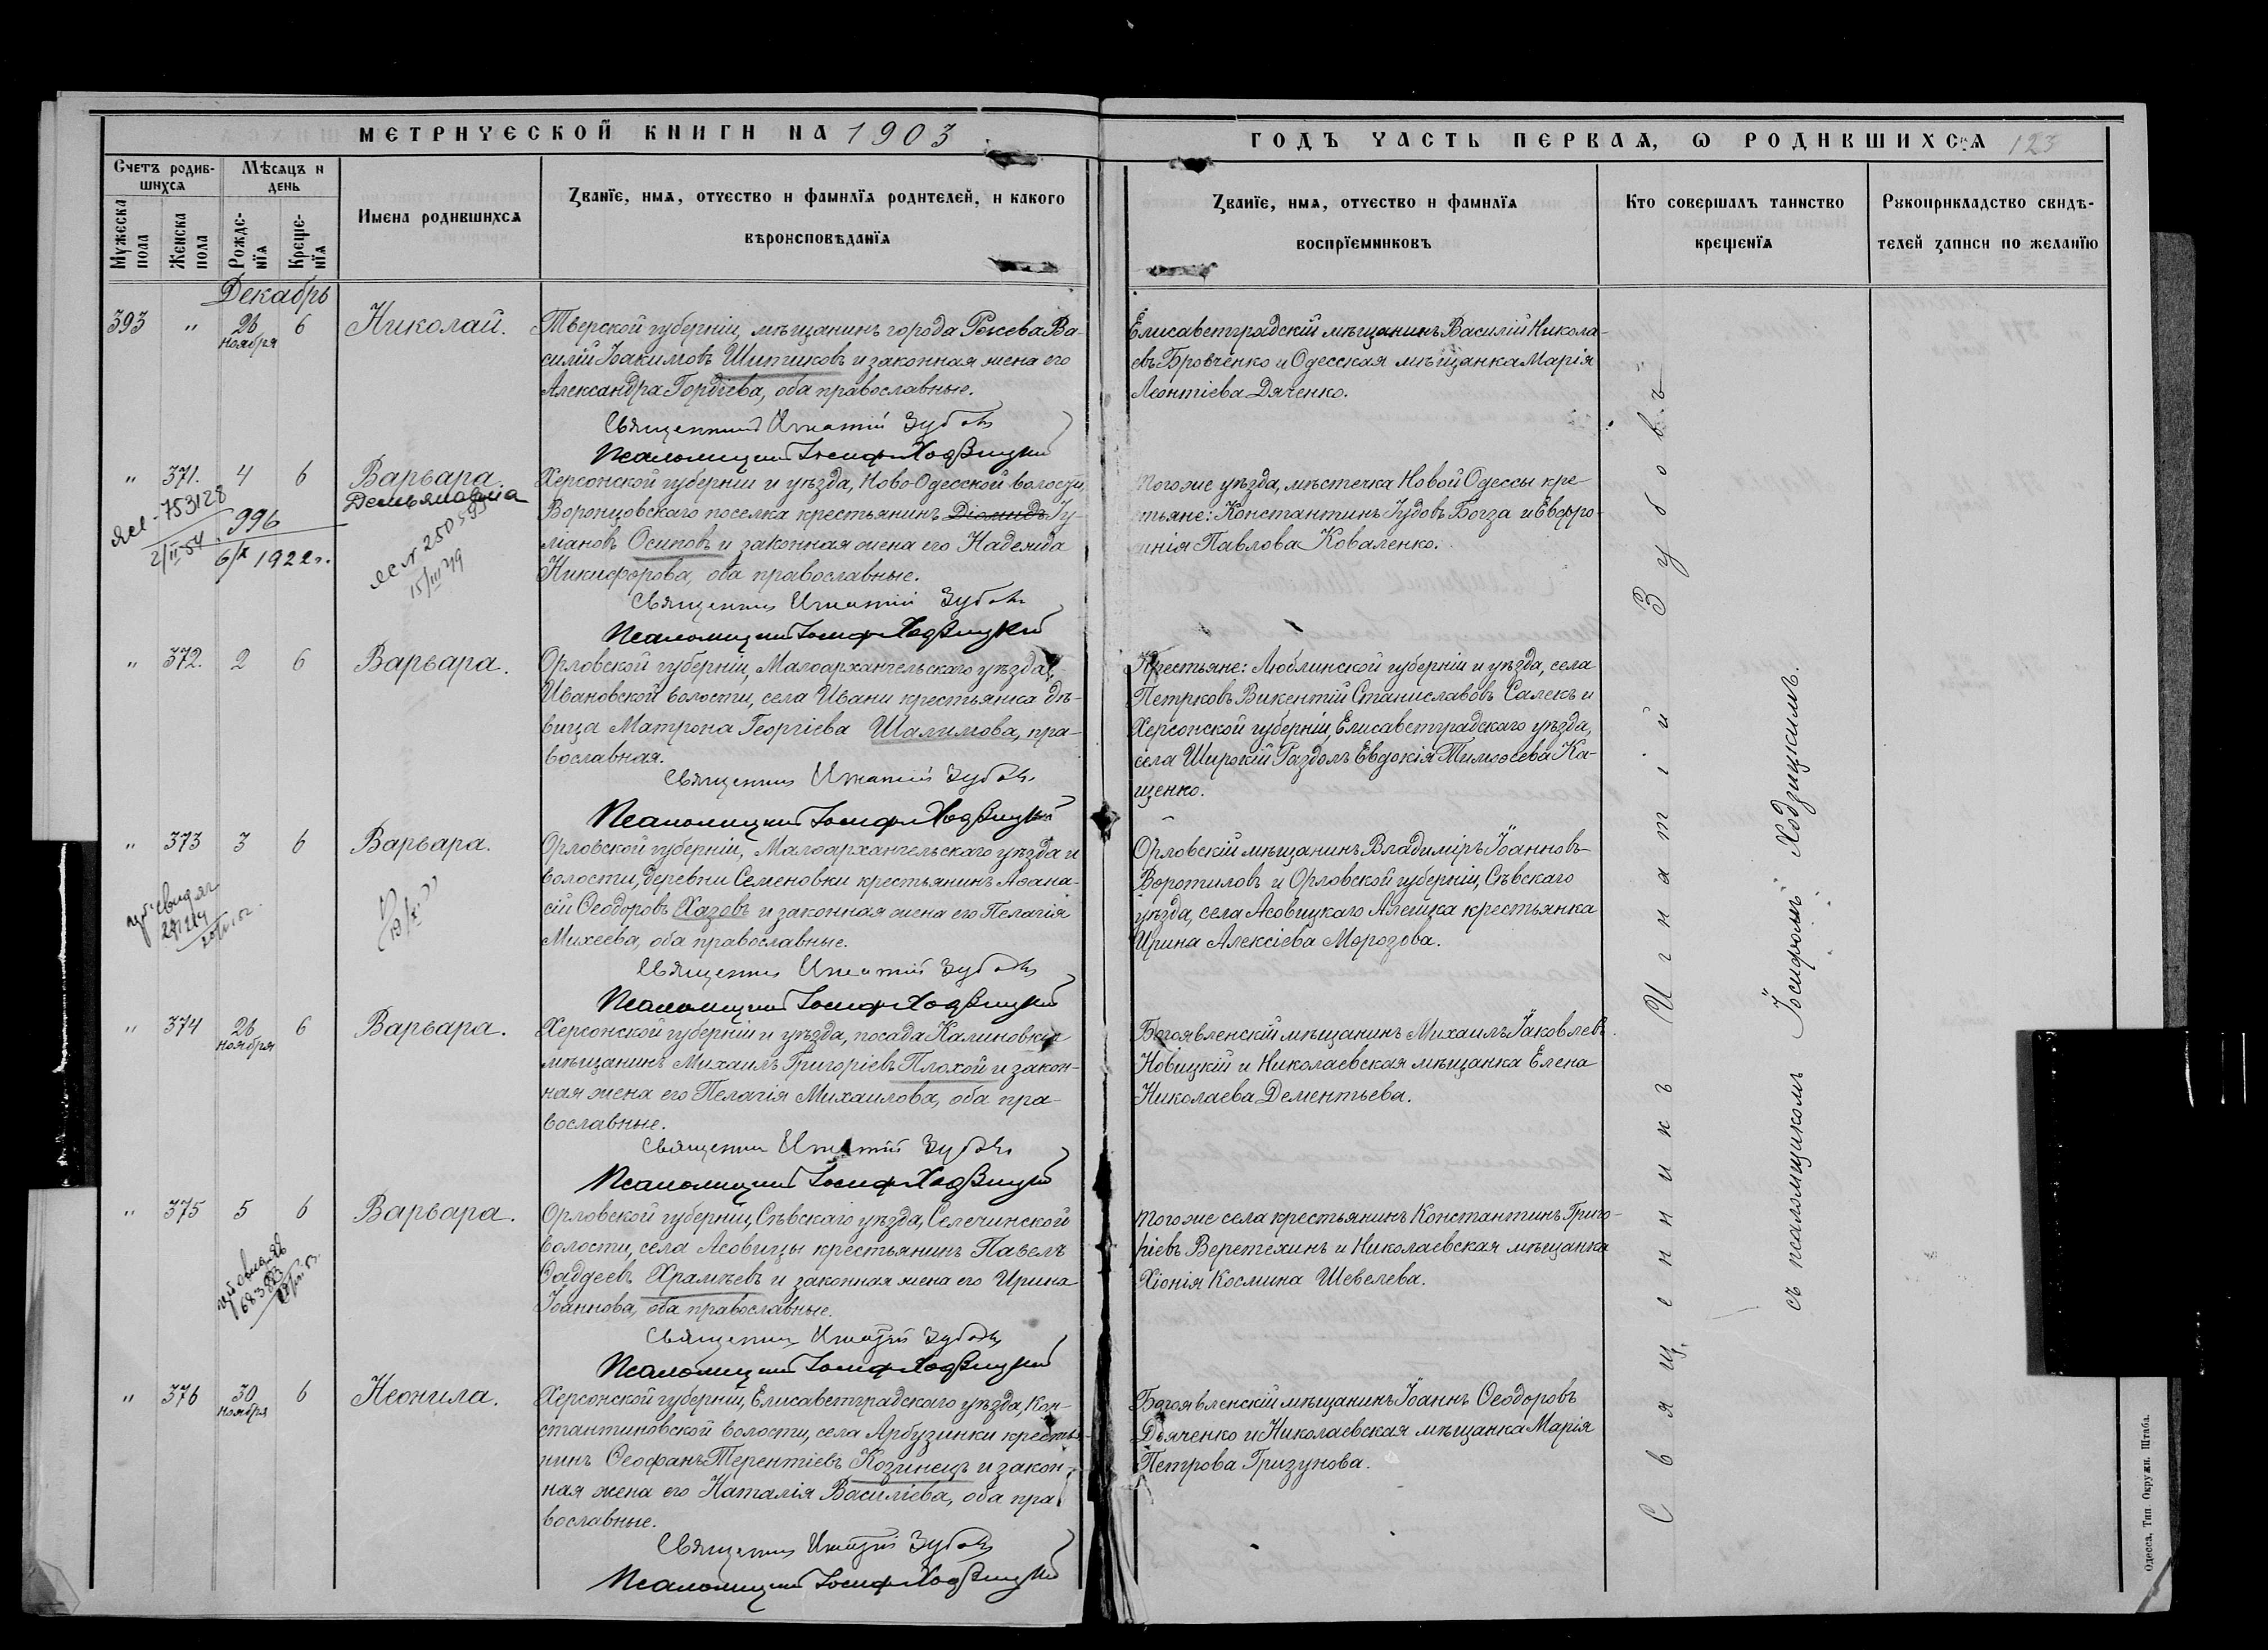 МЕТРИЧЕСКОЙ КНИГИ НА 1903
ГОДЪ ЧАСТЬ ПЕРВАЯ, Ѡ РОДИВШИХСЯ 123
Счетъ родив-
шихся
Мѣсяцъ и
день
Мужеска
пола
Женска
пола
Рожде-
нїя
Креще-
нїя
Имена родившихся
Званїе, имя, отчество и фамилїя родителей, и какого
вѣроисповѣданїя
Званїе, имя, отчество и фамилїя
воспрїемниковъ
Кто совершалъ таинство
крещенїя
Рукоприкладство свидѣ-
телей записи по желанїю
Декабрь
393 " 26 ноября 6 Николай.
Тверской губерніи, мѣщанинъ города Ржева Ва-
силій Іоакимовъ Шитиковъ и законная жена его
Александра Гордіева, оба православные.
Елисаветградскій мѣщанинъ Василій Никола-
евъ Бровченко и Одесская мѣщанка Марія
Леонтіева Дяченко.
Священникъ Игнатій Зубовъ
Псаломщикъ Іосифъ Ходзицкій
" 371. 4 6 Варвара.
Херсонской губерніи и уѣзда, Ново-Одесской волости,
Воронцовскаго поселка крестьянинъ Діомидъ Іу-
ліановъ Осиповъ и законная жена его Надежда
Никифорова, оба православные.
Того же уѣзда, мѣстечка Новой Одессы кре
тьяне: Константинъ Іудовъ Богза и Евфро-
инія Павлова Коваленко.
753128
996
2/II-54
6/X 1922г.
15/III 49
Священникъ Игнатій Зубовъ
Псаломщикъ Іосифъ Ходзицкій
" 372. 2 6 Варвара.
Орловской губерніи, Малоархангельскаго уѣзда,
Ивановской волости, села Ивани крестьянка дѣ-
вица Матрона Георгіева Шалимова, пра-
вославная.
Крестьяне: Люблинской губерніи и уѣзда, села
Петрковъ Викентій Станиславовъ Салекъ и
Херсонской губерніи, Елисаветградскаго уѣзда,
села Широкій Раздолъ Евдокія Тимоѳеева Ка-
щенко.
Священникъ Игнатій Зубовъ
Псаломщикъ Іосифъ Ходзицкій
" 373 3 6 Варвара.
Орловской губерніи, Малоархангельскаго уѣзда и
волости, деревни Семеновки крестьянинъ Аѳана-
сій Ѳеодоровъ Хазовъ и законная жена его Пелагія
Михеева, оба православные.
Орловскій мѣщанинъ Владиміръ Іоанновъ
Воротиловъ и Орловской губерніи, Сѣвскаго
уѣзда, села Асовицкаго Алешка крестьянка
Ирина Алексіева Морозова.
Священникъ Игнатій Зубовъ
Псаломщикъ Іосифъ Ходзицкій
" 374 26 ноября 6 Варвара.
Херсонской губерніи и уѣзда, посада Калиновки
мѣщанинъ Михаилъ Григоріевъ Плохой и закон-
ная жена его Пелагія Михаилова, оба пра-
вославные.
Богоявленскій мѣщанинъ Михаилъ Іаковлевъ
Новицкій и Николаевская мѣщанка Елена
Николаева Дементьева.
Священникъ Игнатій Зубовъ
Псаломщикъ Іосифъ Ходзицкій
" 375 5 6 Варвара.
Орловской губерніи, Сѣвскаго уѣзда, Селечинской
волости, села Асовицы крестьянинъ Павелъ
Ѳаддеевъ Храмѣевъ и законная жена его Ирина
Іоаннова, оба православные.
Того же села крестьянинъ Константинъ Григо-
ріевъ Веретехинъ и Николаевская мѣщанка
Хіонія Космина Шевелева.
Священникъ Игнатій Зубовъ
Псаломщикъ Іосифъ Ходзицкій
" 376 30 ноября 6 Неонила.
Херсонской губерніи, Елисаветградскаго уѣзда, Кон-
стантиновской волости, села Арбузинки крестья-
нинъ Ѳеофанъ Терентіевъ Козинецъ и закон-
ная жена его Наталія Василіева, оба пра-
вославные.
Богоявленскій мѣщанинъ Іоаннъ Ѳеодоровъ
Дьяченко и Николаевская мѣщанка Марія
Петрова Гризунова.
Священникъ Игнатій Зубовъ
Псаломщикъ Іосифъ Ходзицкій
Священникъ Игнатій Зубовъ
съ псаломщикомъ Іосифомъ Ходзицкимъ.
Одесса, Тип. Окружн. Штаба.